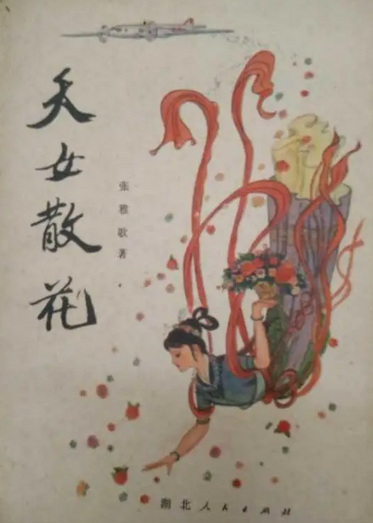 天女散花
张雅歌著
湖北人民出版社